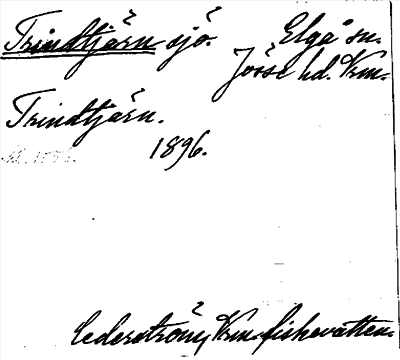 Trindtjärn sjö. Elgå sn.
Jösse hd. Vrm.
Trindtjärn.
1896.
Cederström, Vrm. fiskevatten.